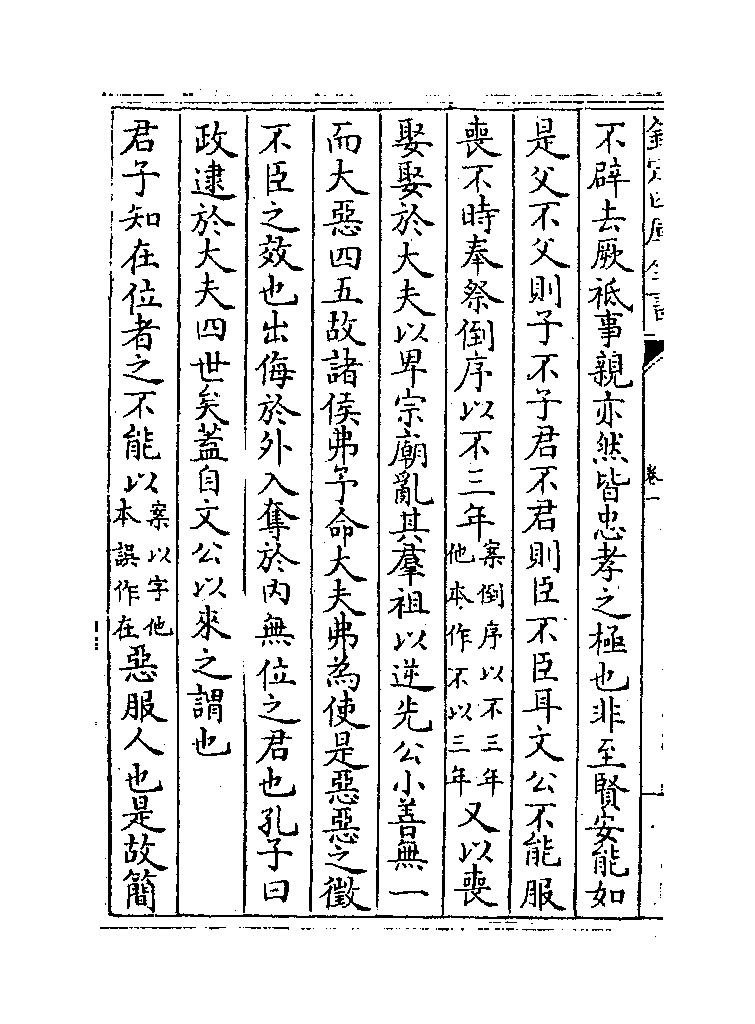 欽定四庫全書
卷一
不辟去厥祗事親亦然皆忠孝之極也非至賢安能如
是父不父則子不子君不君則臣不臣耳文公不能服
喪不時奉祭倒序以不三年案倒序以不三年他本作不以三年又以喪
娶娶於大夫以卑宗廟亂其羣祖以逆先公小善無一
而大惡四五故諸侯弗予命大夫弗為使是惡惡之徵
不臣之效也出侮於外入奪於内無位之君也孔子曰
政逮於大夫四世矣蓋自文公以來之謂也
君子知在位者之不能以案以字他本誤作在惡服人也是故簡